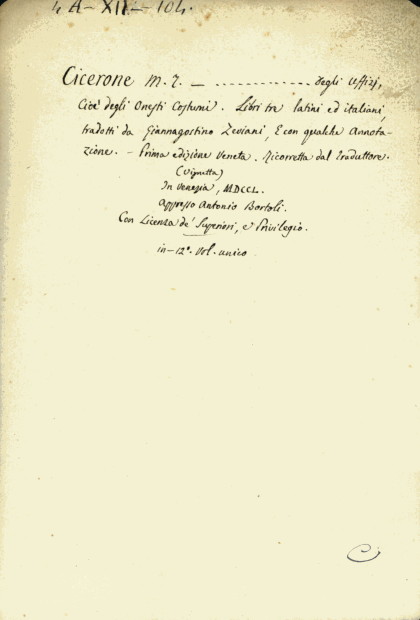 4 A - XII - 104.
Cicerone M. T. — .............. Degli Uffizj,
Cioè degli Onesti Costumi. Libri tre latini ed italiani,
tradotti da Giannagostino Zeviani, E con qualche Annota-
zione. - Prima edizione Veneta. Ricorretta dal Traduttore.
(Vignetta)
In Venezia, MDCCL.
Appresso Antonio Bortoli.
Con Licenza de' Superiori, e Privilegio.
in-12°. Vol. unico
C